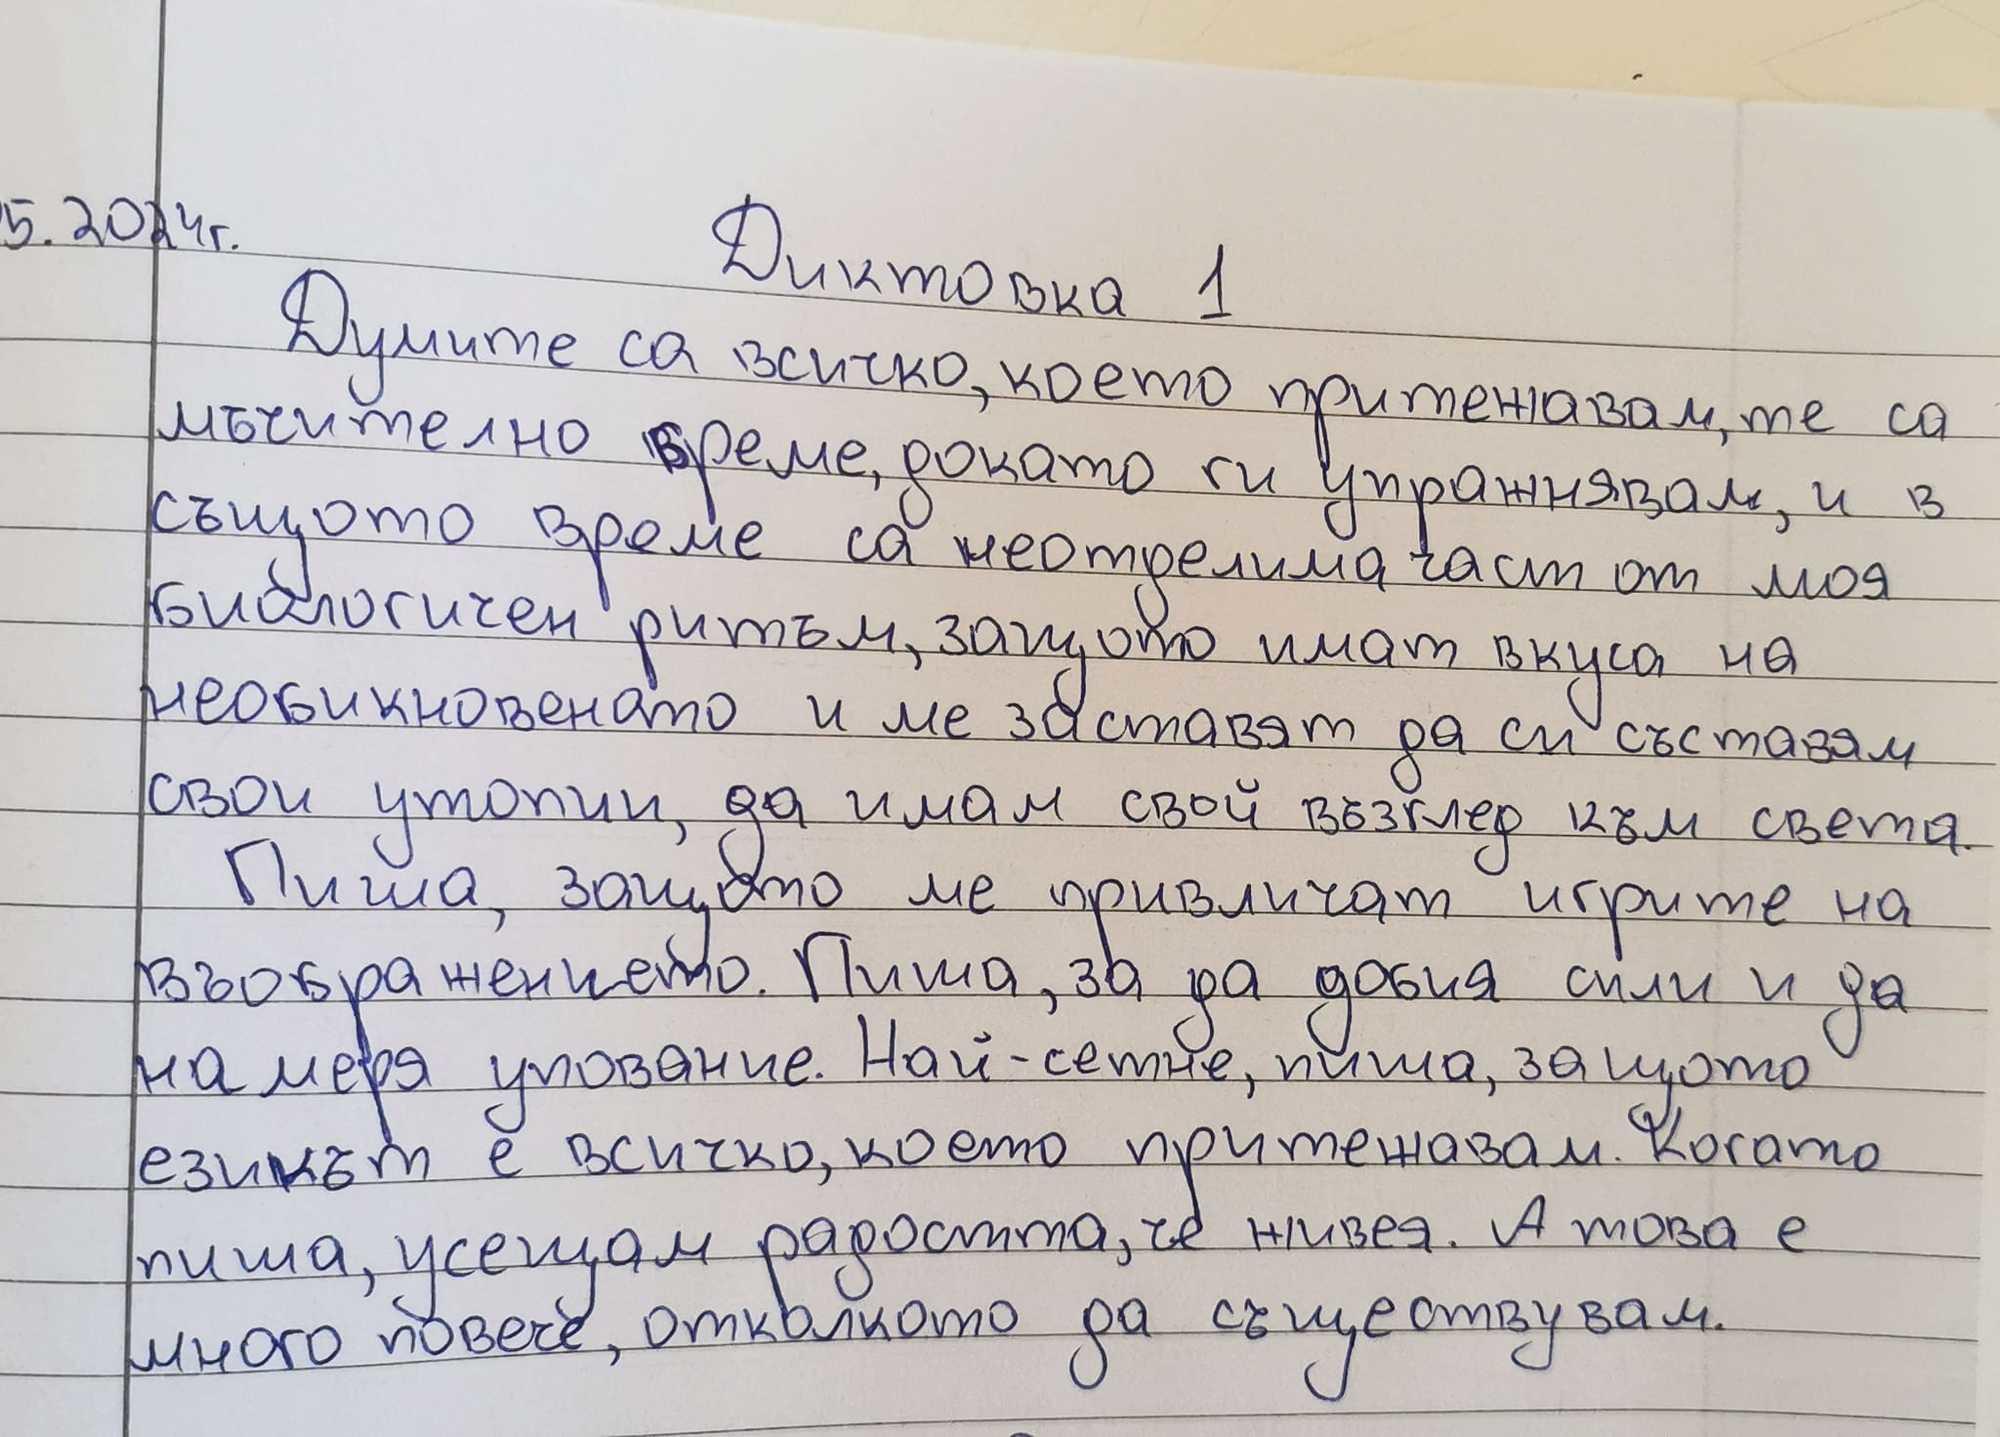 5.2024г.
Диктовка 1
Думите са всичко, което притежавам, те са
мъчително време, докато ги упражнявам, и в
същото време са неотделима част от моя
биологичен ритъм, защото имат вкуса на
необикновенато и ме заставят да си съставям
свои утопии, да имам свой възглед към света.
Пиша, защото ме привличат игрите на
въображението. Пиша, за да добия сили и да
намеря упование. Най-сетне, пиша, защото
езикът е всичко, което притежавам. Когато
пиша, усещам радостта, че живея. А това е
много повече, отколкото да съществувам.